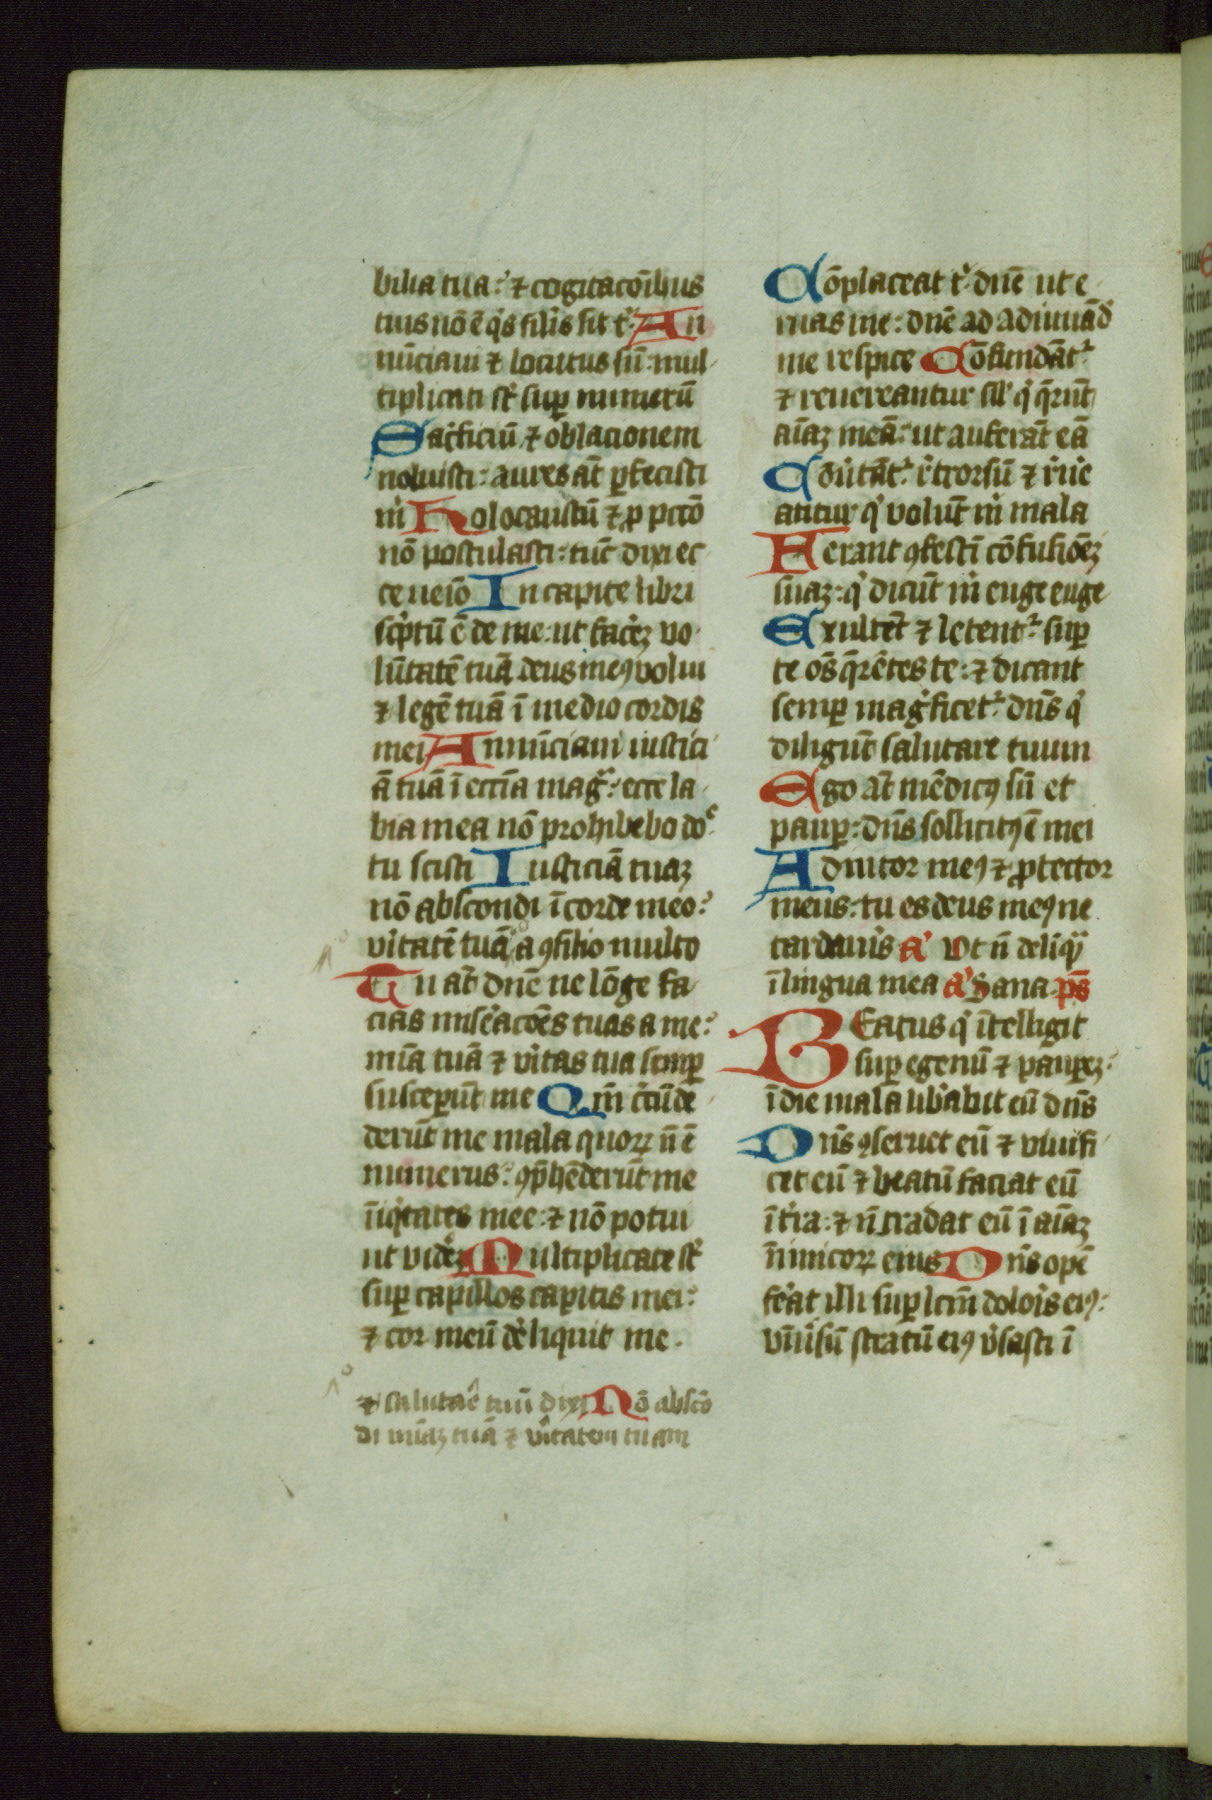 bilia tua: ⁊ cogitacōibus
tuis nō ē q̇s silis sit t̉ An
nūciaui ⁊ locutus sū: mul
tiplicati sť suꝑ numerū
Sac̉ficiū ⁊ oblacionem
noluisti: aures aūt ꝑfecisti
m̉ Holocaustū ⁊ ꝓ pccō
nō postulasti: tūc dixi ec
ce uenio In capite libri
sc̉ptū ē de me: ut facẽȝ vo
lūtatē tuā deus meꝰ volui
⁊ legē tuā ī medio cordis
mei Annūciaui iustici
ā tuā ī ecc̄ia mag: ecce la
bia mea nō prohibebo do
tu scisti Iusticiā tuaȝ
nō abscondi ī corde meo:
v̉itatē tuā a ꝯsilio multo
Tu aūt dn̄e ne lōge fa
cias mise̾acōes tuas a me:
mīa tua ⁊ v̉itas tua semꝑ
susceꝑūt me Qm̄ c̉cūde
derūt me mala quoꝝ n̄ ē
numerus: ꝯp̄hēderūt me
īiq̇tates mee: ⁊ nō potui
ut vider̉ȝ Multiplicate sť
suꝑ capillos capitis mei:
⁊ cor meū de̾liquit me.
⁊ salutar̄e tuū dixi Nō abscō
di mīaȝ tuā ⁊ v̉itatem tuam
Cōplaceat t̉ dn̄e ut e
ruas me: dn̄e ad adiuuād̉
me respice Cōfundāt᷑
⁊ reuereantur sil̉ q̇ q̄rūt
aīaȝ meā: ut auferāt eā
Cōūtāt᷑ r̉trorsū ⁊ r̉ue
antur q̇ volūt m̉ mala
Ferant ꝯfestī cōfusiōeȝ
suaȝ: q̇ dicūt m̉ euge euge
Exultēt ⁊ letent᷑ suꝑ
te oēs q̄rētes te: ⁊ dicant
semꝑ mag̉ficet᷑ dn̄s q̇
diligūt salutare tuum
Ego aūt mēdicꝰ sū et
pauꝑ: dn̄s sollicitꝰ ē mei
Adiutor meꝰ ⁊ ꝓtector
meus: tu es deus meꝰ ne
tardaue̾is a᷑ Vt n̄ deliq̄
ī lingua mea a᷑ Sana p̄s
BEatus q̇ ītelligit
suꝑ egenū ⁊ pauꝑeȝ:
ī die mala lib̾abit eū dn̄s
Dn̄s ꝯseruet eū ⁊ viuifi
cet eū ⁊ beatū faciat eū
ī t̾ra: ⁊ n̄ tradat eū ī aīaȝ
īnimicoꝝ eius Dn̄s opē
fe̾at illi suꝑ lc̄m dolo̾is eiꝰ:
vniūsū stratū eiꝰ v̾sasti ī